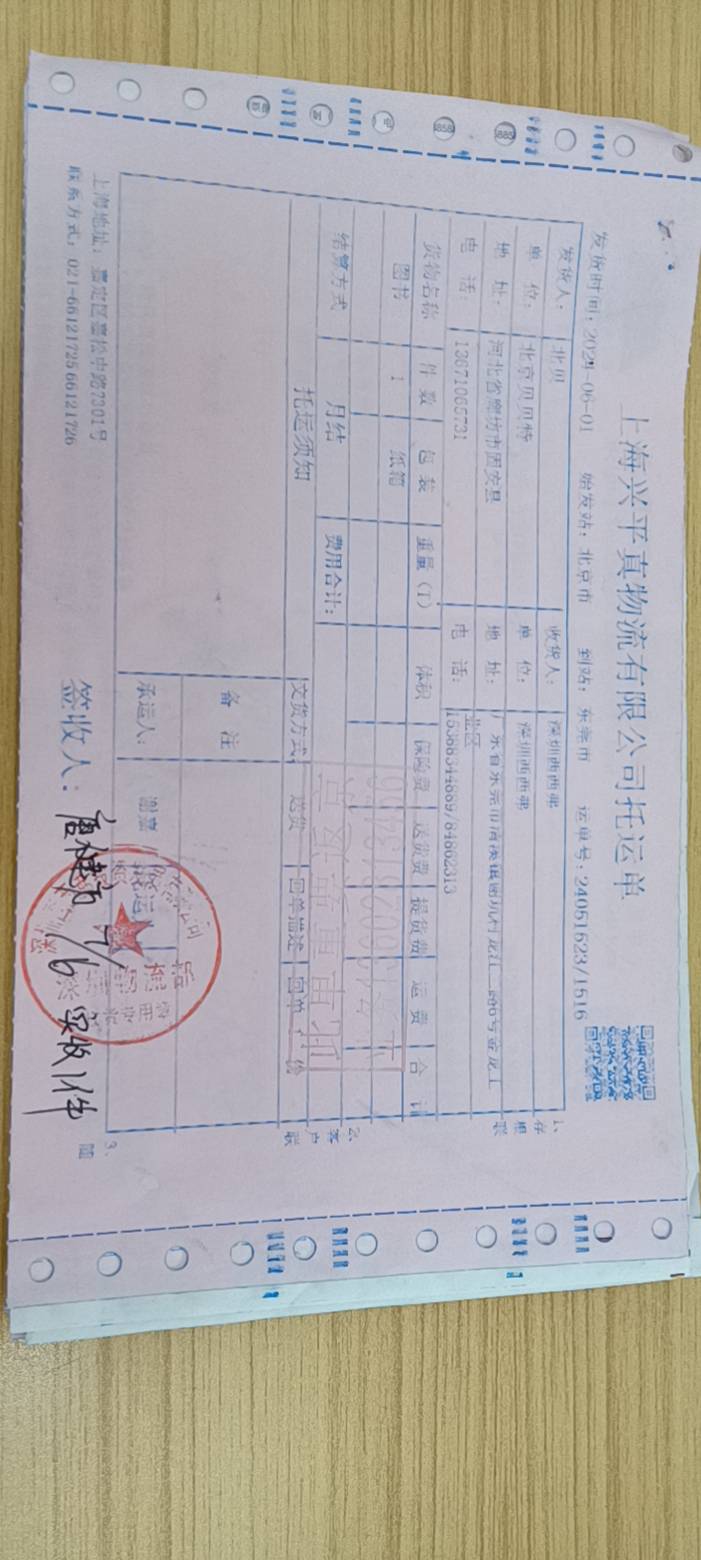 上海兴平真物流有限公司托运单
发货时间：2024-06-01 始发站：北京市 到站：东莞市 运单号：24051523/1516
发货人： 北贝 收货人： 深圳西西弗
单 位： 北京贝贝特 单 位： 深圳西西弗
地 址： 河北省廊坊市固安县 地 址： 广东省东莞市清溪镇
业区
电 话： 13671065731 电 话： 15368344889/84862313
货物名称 件 数 包 装 重量（T） 体积 保险费 送货费 提货费 运 费 合 计
图书 1 纸箱
结算方式 月结 费用合计：
托运须知 交货方式： 送货 回单描述 回单 份
备 注
承运人： 谢嘉
上海地址：嘉定区嘉松中路7301号
联系方式：021-66121725 66121726
签收人： 实收1件
1、存根联
2、客户联
3、随